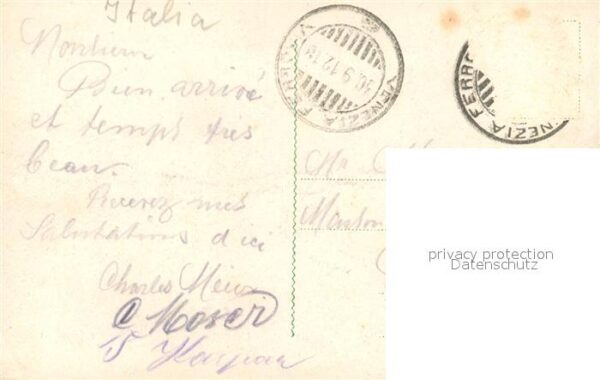 Italia
Monsieur
Bien arrivé
et temps très
beau.
Recevez mes
Salutations d'ici
Charles
C Moser
VENEZIA FERROVIA
30.9.12
VENEZIA FERRO
Mr
privacy protection
Datenschutz